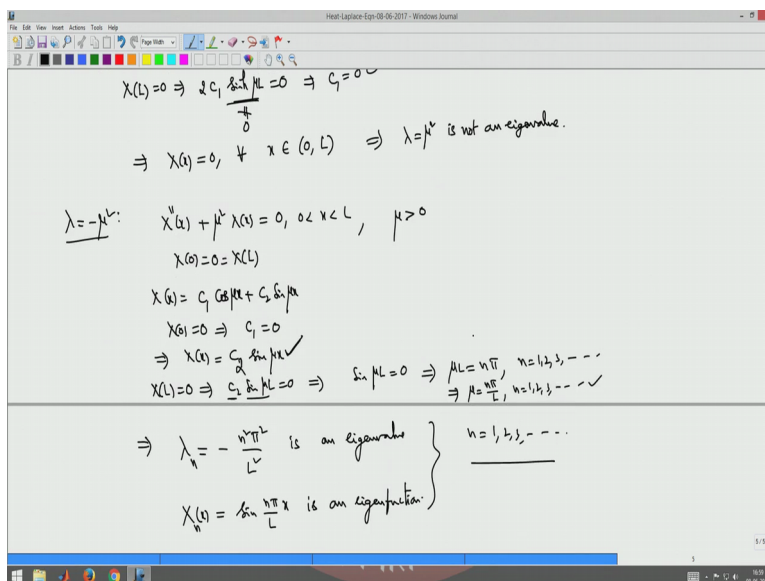 Heat-Laplace-Eqn-08-06-2017 - Windows Journal
File Edit View Insert Actions Tools Help
Page Width
B I
X(L)=0 ⇒ 2C₁ sinh μL = 0 ⇒ C₁=0
≠
0
⇒ X(x)=0, ∀ x ∈ (0, L) ⇒ λ=μ² is not an eigenvalue.
λ=-μ²: X''(x) + μ² X(x) = 0, 0<x<L, μ>0
X(0)=0=X(L)
X(x) = C₁ Cos μx + C₂ Sin μx
X(0)=0 ⇒ C₁=0
⇒ X(x) = C₂ Sin μx ✓
X(L)=0 ⇒ C₂ Sin μL=0 ⇒ Sin μL=0 ⇒ μL=nπ, n=1,2,3,----
⇒ μ=nπ/L, n=1,2,3,---- ✓
⇒ λₙ = - n²π²/L² is an eigenvalue } n=1,2,3,----
Xₙ(x) = Sin nπ/L x is an eigenfunction.
5/5
5
16:59